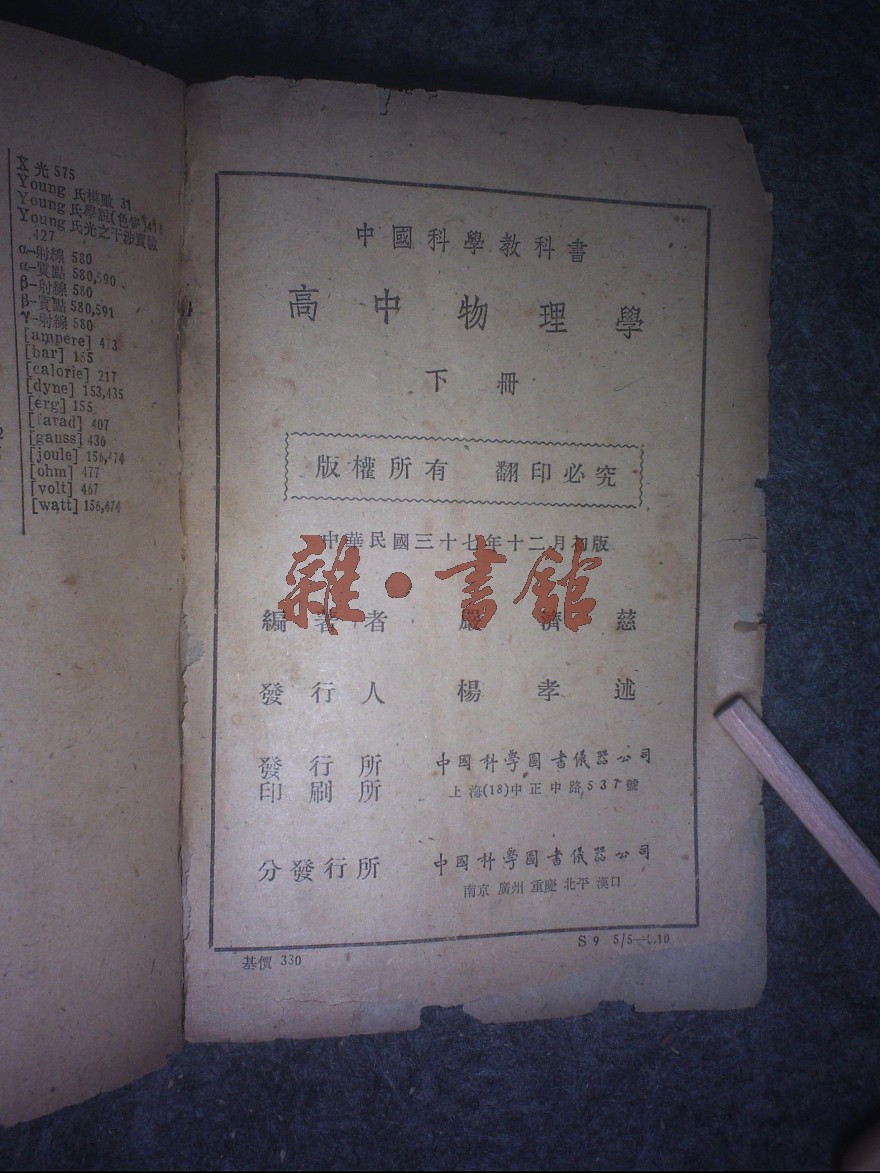 X 光 575
Young 氏模數 31
Young 氏學說(色覺)
Young 氏光之干涉實驗
427
α—射線 580
α—質點 580,590
β—射線 580
β—質點 580,591
γ—射線 580
[ampere] 473
[bar] 155
[calorie] 217
[dyne] 153,435
[erg] 155
[farad] 407
[gauss] 436
[joule] 156,474
[ohm] 477
[volt] 467
[watt] 156,474
中國科學教科書
高中物理學
下冊
版權所有 翻印必究
中華民國三十七年十二月初版
雜·書館
編著者 嚴濟慈
發行人 楊孝述
發行所 中國科學圖書儀器公司
印刷所 上海(18)中正中路537號
分發行所 中國科學圖書儀器公司
南京 廣州 重慶 北平 漢口
基價 330
S 9 5/5—0.10